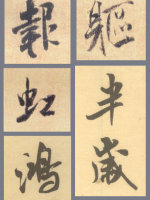 報
軀
虹
鴻
半
歲